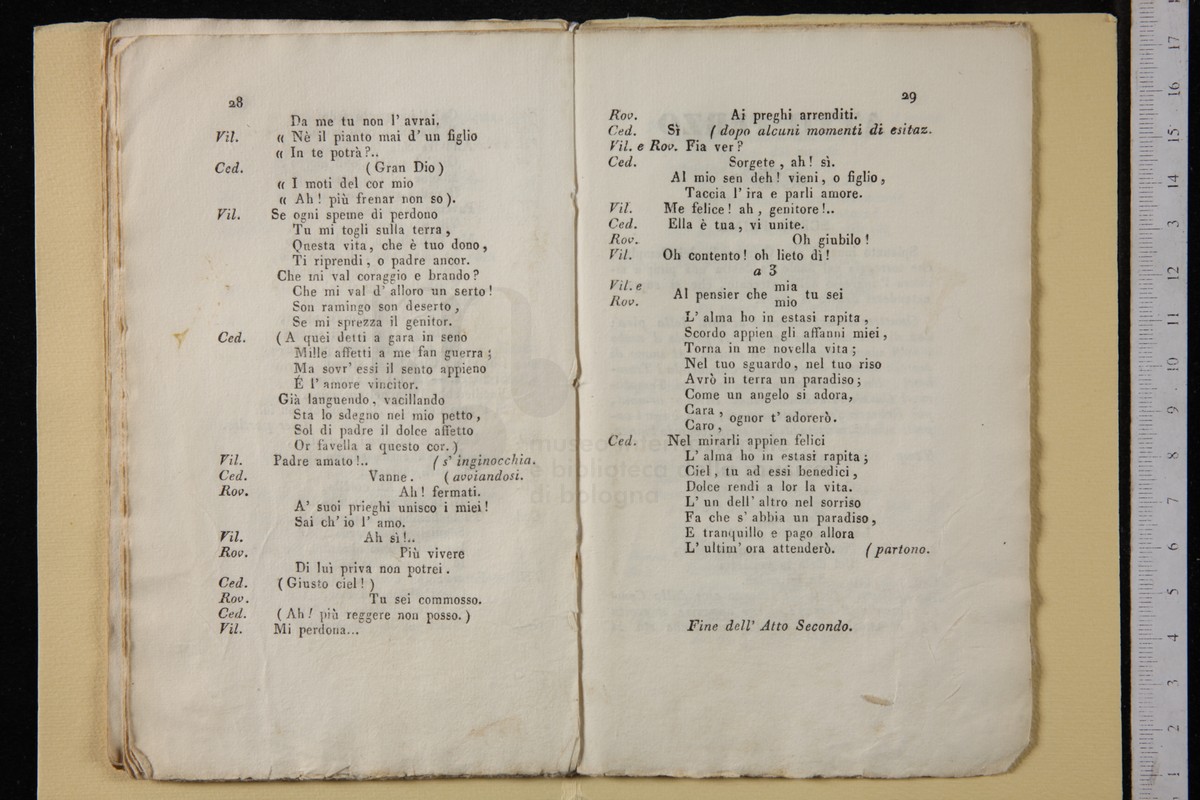 28
Da me tu non l' avrai.
Vil. « Nè il pianto mai d' un figlio
« In te potrà?..
Ced. (Gran Dio)
« I moti del cor mio
« Ah! più frenar non so).
Vil. Se ogni speme di perdono
Tu mi togli sulla terra,
Questa vita, che è tuo dono,
Ti riprendi, o padre ancor.
Che mi val coraggio e brando?
Che mi val d' alloro un serto!
Son ramingo son deserto,
Se mi sprezza il genitor.
Ced. (A quei detti a gara in seno
Mille affetti a me fan guerra;
Ma sovr' essi il sento appieno
É l' amore vincitor.
Già languendo, vacillando
Sta lo sdegno nel mio petto,
Sol di padre il dolce affetto
Or favella a questo cor.)
Vil. Padre amato!.. (s' inginocchia.
Ced. Vanne. (avviandosi.
Rov. Ah! fermati.
A' suoi prieghi unisco i miei!
Sai ch' io l' amo.
Vil. Ah sì!..
Rov. Più vivere
Di lui priva non potrei.
Ced. (Giusto ciel!)
Rov. Tu sei commosso.
Ced. (Ah! più reggere non posso.)
Vil. Mi perdona...
29
Rov. Ai preghi arrenditi.
Ced. Sì (dopo alcuni momenti di esitaz.
Vil. e Rov. Fia ver?
Ced. Sorgete, ah! sì.
Al mio sen deh! vieni, o figlio,
Taccia l' ira e parli amore.
Vil. Me felice! ah, genitore!..
Ced. Ella è tua, vi unite.
Rov. Oh giubilo!
Vil. Oh contento! oh lieto dì!
a 3
Vil. e mia
Al pensier che tu sei
Rov. mio
L' alma ho in estasi rapita,
Scordo appien gli affanni miei,
Torna in me novella vita;
Nel tuo sguardo, nel tuo riso
Avrò in terra un paradiso;
Come un angelo si adora,
Cara,
ognor t' adorerò.
Caro,
Ced. Nel mirarli appien felici
L' alma ho in estasi rapita;
Ciel, tu ad essi benedici,
Dolce rendi a lor la vita.
L' un dell' altro nel sorriso
Fa che s' abbia un paradiso,
E tranquillo e pago allora
L' ultim' ora attenderò. (partono.
Fine dell' Atto Secondo.